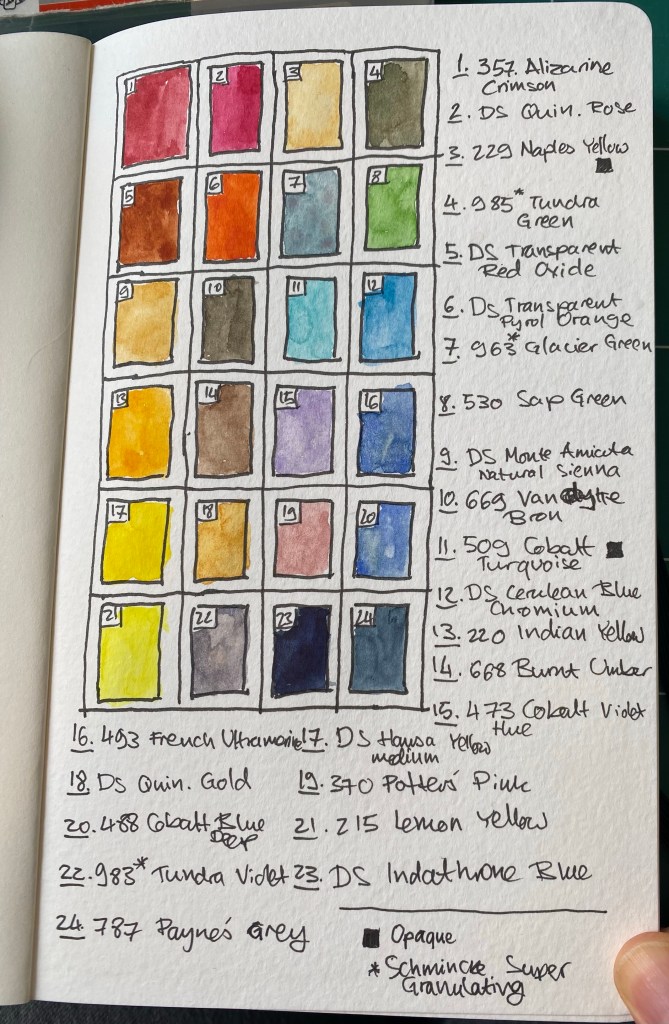 1 2 3 4
5 6 7 8
9 10 11 12
13 14 15 16
17 18 19 20
21 22 23 24
1. 357. Alizarine
Crimson
2. DS Quin. Rose
3. 229 Naples Yellow
4. 985* Tundra
Green
5. DS Transparent
Red Oxide
6. DS Transparent
Pyrol Orange
7. 963* Glacier Green
8. 530 Sap Green
9. DS Monte Amiata
Natural Sienna
10. 669 Vandyke
Bron
11. 509 Cobalt
Turquoise
12. DS Cerulean Blue
Chromium
13. 220 Indian Yellow
14. 668 Burnt Umber
15. 473 Cobalt Violet
Hue
16. 493 French Ultramarine 17. DS Hansa Yellow
medium
18. DS Quin. Gold 19. 370 Potters' Pink
20. 488 Cobalt Blue
Deep
21. 215 Lemon Yellow
22. 983* Tundra Violet 23. DS Indathrone Blue
24. 787 Payne's Grey
Opaque
* Schmincke Super
Granulating